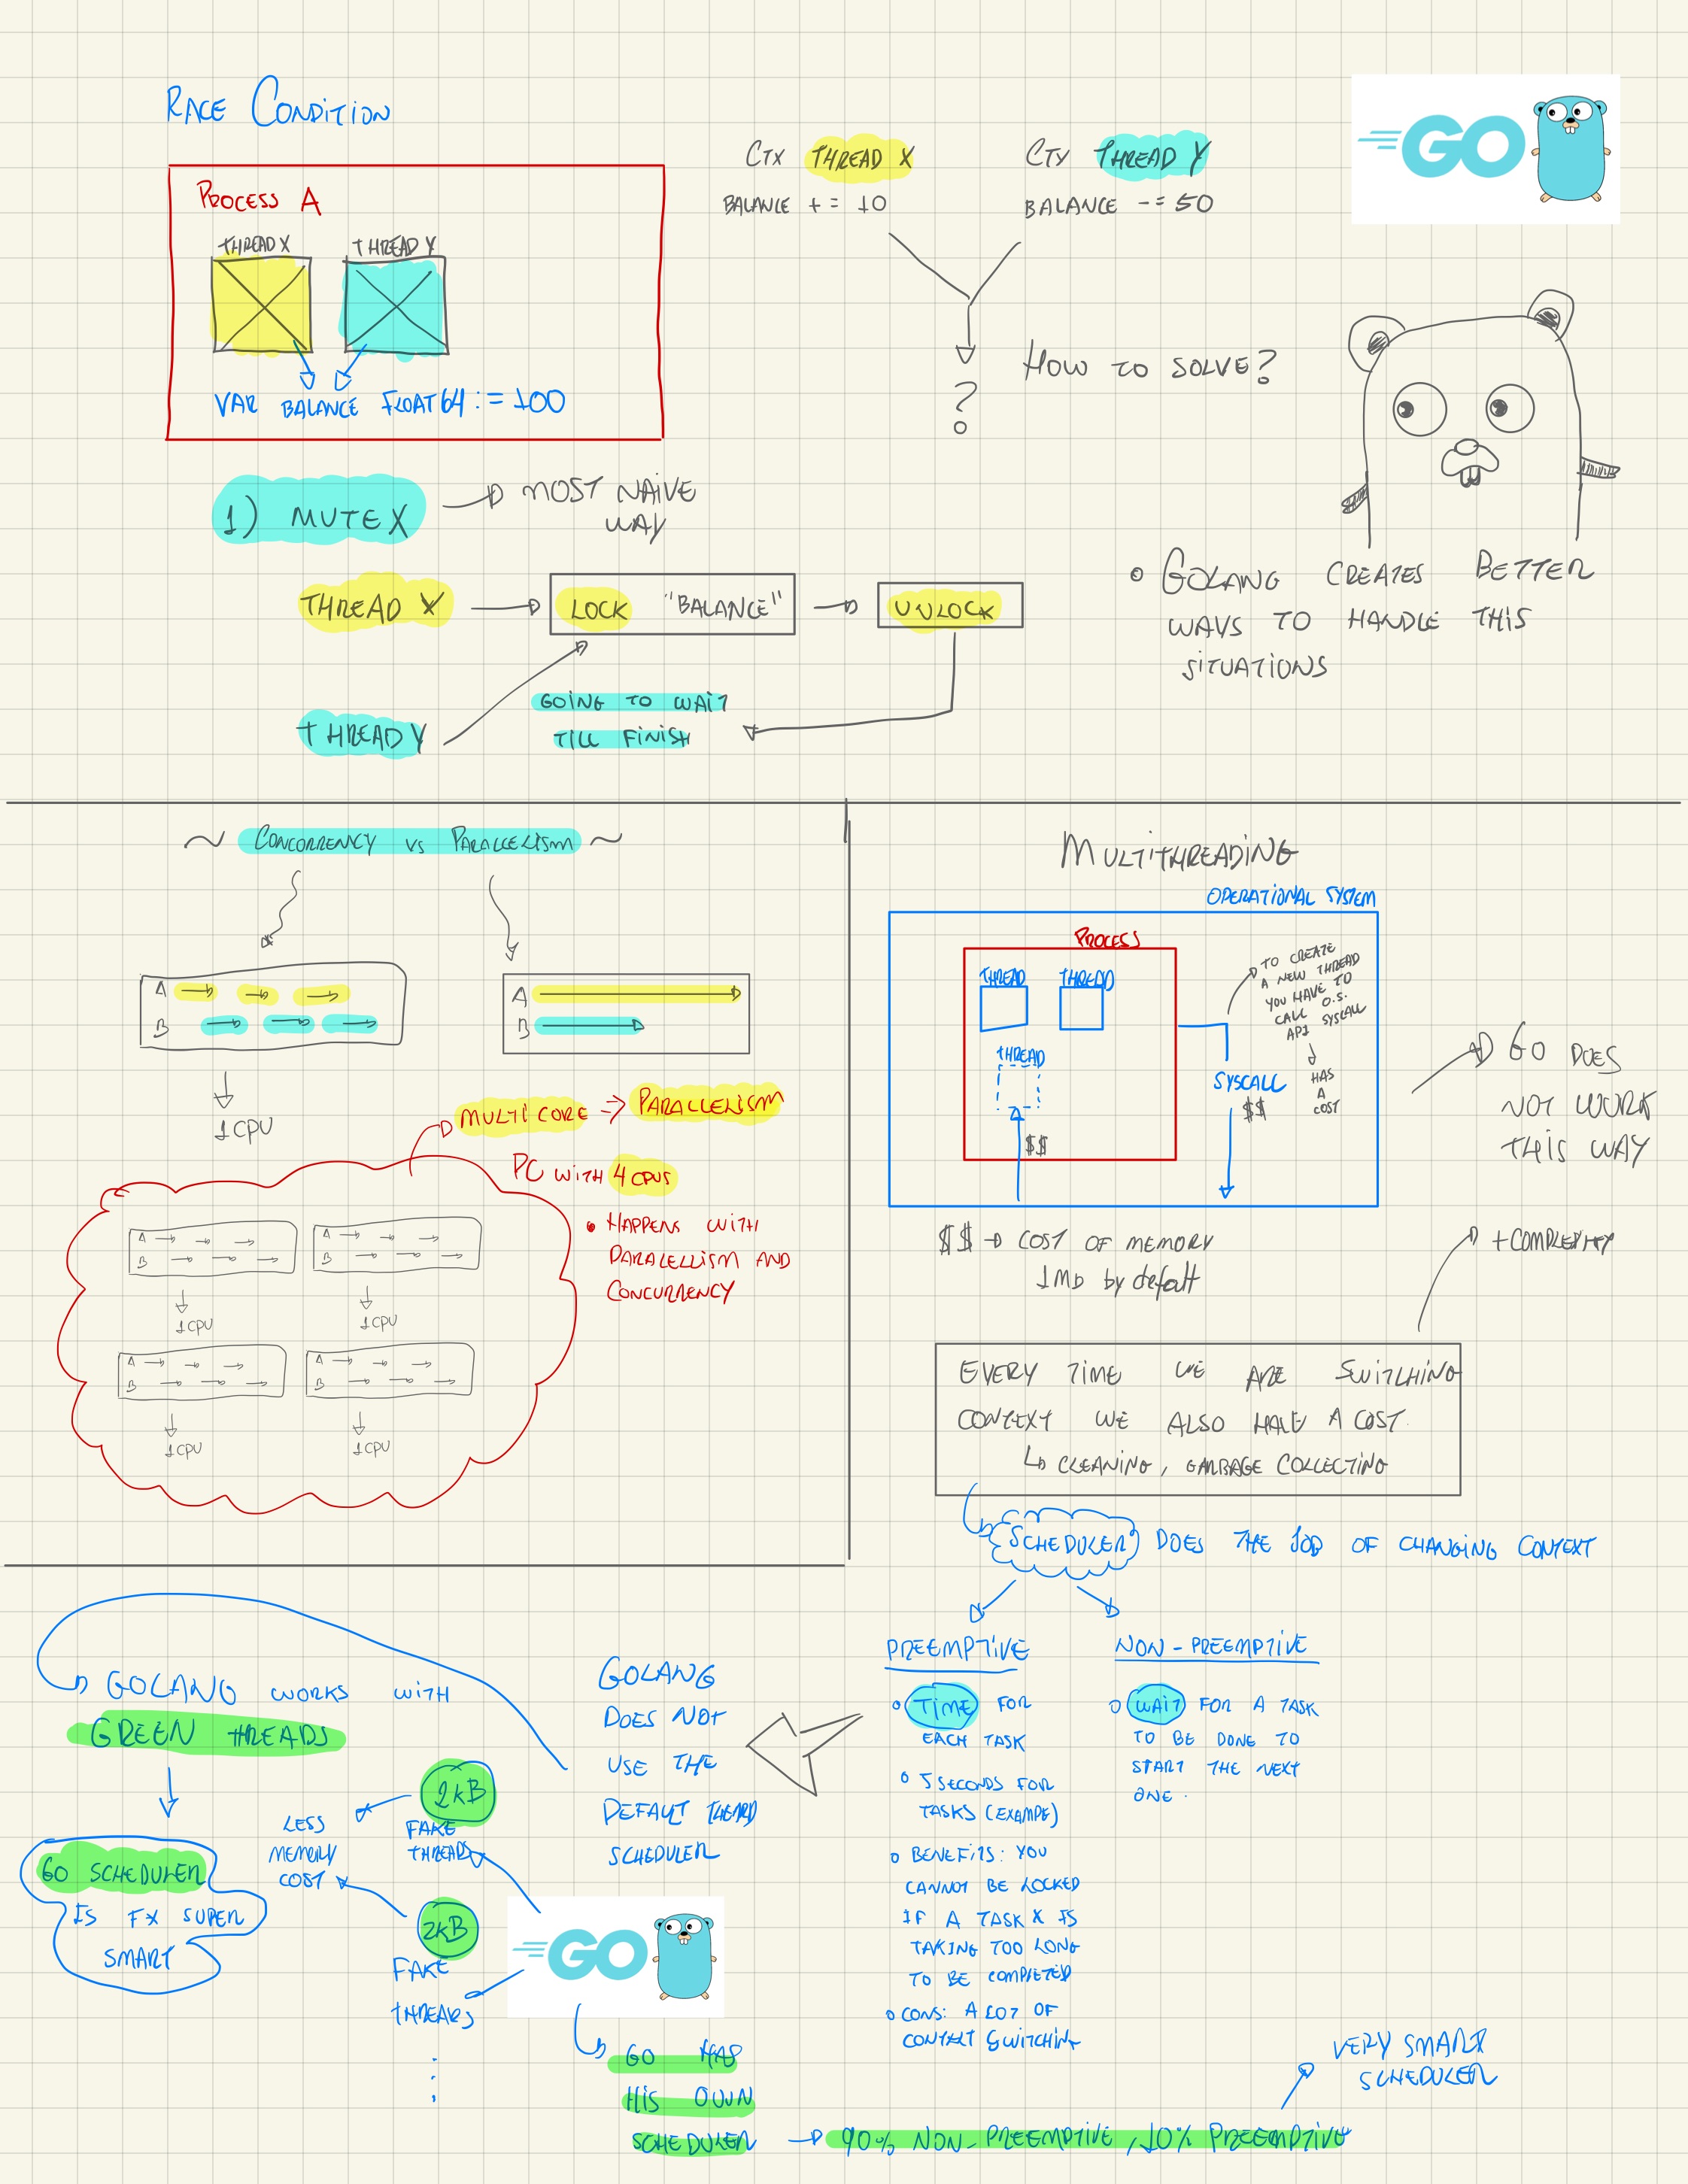 RACE CONDITION
PROCESS A
THREAD X
THREAD Y
VAR BALANCE FLOAT64 := 100
CTX THREAD X
BALANCE += 10
CTY THREAD Y
BALANCE -= 50
?
HOW TO SOLVE?
GO
1) MUTEX
MOST NAIVE
WAY
THREAD X
LOCK "BALANCE"
UNLOCK
THREAD Y
GOING TO WAIT
TILL FINISH
GOLANG CREATES BETTER
WAYS TO HANDLE THIS
SITUATIONS
~ CONCORRENCY VS PARALLELISM ~
A
B
1 CPU
A
B
MULTI CORE => PARALLELISM
PC WITH 4 CPUS
HAPPENS WITH
PARALELLISM AND
CONCURRENCY
A
B
1 CPU
A
B
1 CPU
A
B
1 CPU
A
B
1 CPU
MULTITHREADING
OPERATIONAL SYSTEM
PROCESS
THREAD
THREAD
THREAD
$$
SYSCALL
$$
TO CREATE
A NEW THREAD
YOU HAVE TO
CALL O.S.
API SYSCALL
HAS
A
COST
GO DOES
NOT WORK
THIS WAY
$$ → COST OF MEMORY
1MB by default
+COMPLEXITY
EVERY TIME WE ARE SWITCHING
CONTEXT WE ALSO HAVE A COST.
CLEANING, GARBAGE COLLECTING
SCHEDULER DOES THE JOB OF CHANGING CONTEXT
PREEMPTIVE
TIME FOR
EACH TASK
5 SECONDS FOR
TASKS (EXAMPE)
BENEFITS: YOU
CANNOT BE LOCKED
IF A TASK X IS
TAKING TOO LONG
TO BE COMPLETED
CONS: A LOT OF
CONTEXT SWITCHING
NON-PREEMPTIVE
WAIT FOR A TASK
TO BE DONE TO
START THE NEXT
ONE.
GOLANG
DOES NOT
USE THE
DEFAULT THEARD
SCHEDULER
GOLANG WORKS WITH
GREEN THREADS
GO SCHEDULER
IS FX SUPER
SMART
2KB
FAKE
THREADS
LESS
MEMORY
COST
2KB
FAKE
THREADS
GO
GO HAS
HIS OWN
SCHEDULER
90% NON-PREEMPTIVE, 10% PREEMPTIVE
VERY SMART
SCHEDULER